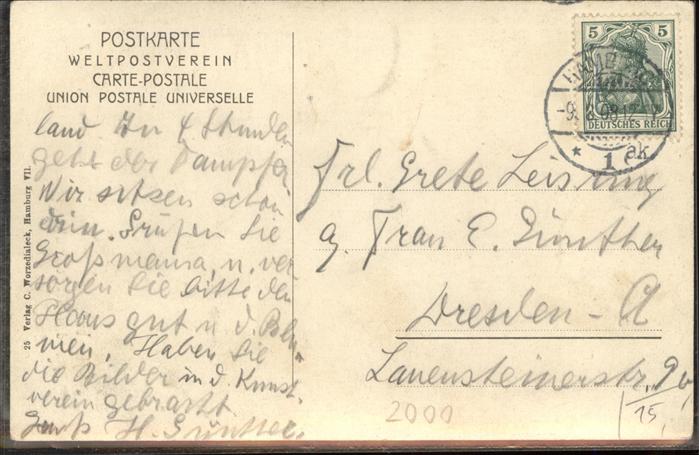 POSTKARTE
WELTPOSTVEREIN
CARTE-POSTALE
UNION POSTALE UNIVERSELLE
land. In 4 Stunden
geht der Dampfer
Wir sitzen schon
drin. Grüßen Sie
Großmama, u. ver
sorgen Sie bitte den
Haus gut u. d. Blu-
men, Haben Sie
die Bilder in d. Kunst-
verein gebracht.
Gruß H. Günther.
25 Verlag C. Worzedialeck, Hamburg VII.
5 5
DEUTSCHES REICH
HAMBURG
-9. 08.12
* 1 ak
Frl. Grete Leising
Frau E. Günther
Dresden - A
Lauensteinerstr.
15
2000